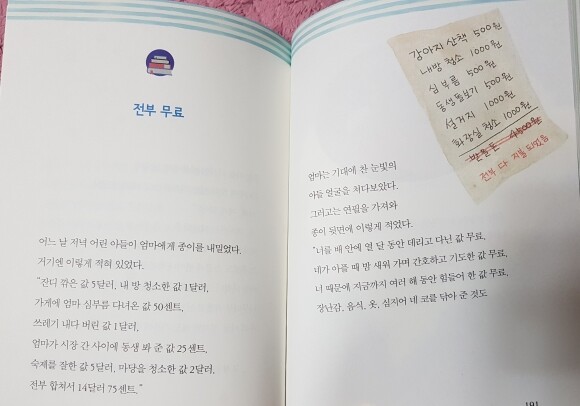 전부 무료
어느 날 저녁 어린 아들이 엄마에게 종이를 내밀었다.
거기엔 이렇게 적혀 있었다.
“잔디 깎은 값 5달러, 내 방 청소한 값 1달러,
가게에 엄마 심부름 다녀온 값 50센트,
쓰레기 내다 버린 값 1달러,
엄마가 시장 간 사이에 동생 봐 준 값 25센트,
숙제를 잘한 값 5달러, 마당을 청소한 값 2달러,
전부 합쳐서 14달러 75센트.”
강아지 산책 500원
내방 청소 1000원
심부름 500원
동생돌보기 500원
설거지 1000원
화장실 청소 1000원
받을돈 4500원
전부 다 지불 되었음
엄마는 기대에 찬 눈빛의
아들 얼굴을 쳐다보았다.
그러고는 연필을 가져와
종이 뒷면에 이렇게 적었다.
“너를 배 안에 열 달 동안 데리고 다닌 값 무료,
네가 아플 때 밤 새워 가며 간호하고 기도한 값 무료,
너 때문에 지금까지 여러 해 동안 힘들어 한 값 무료,
장난감, 음식, 옷, 심지어 네 코를 닦아 준 것도
191